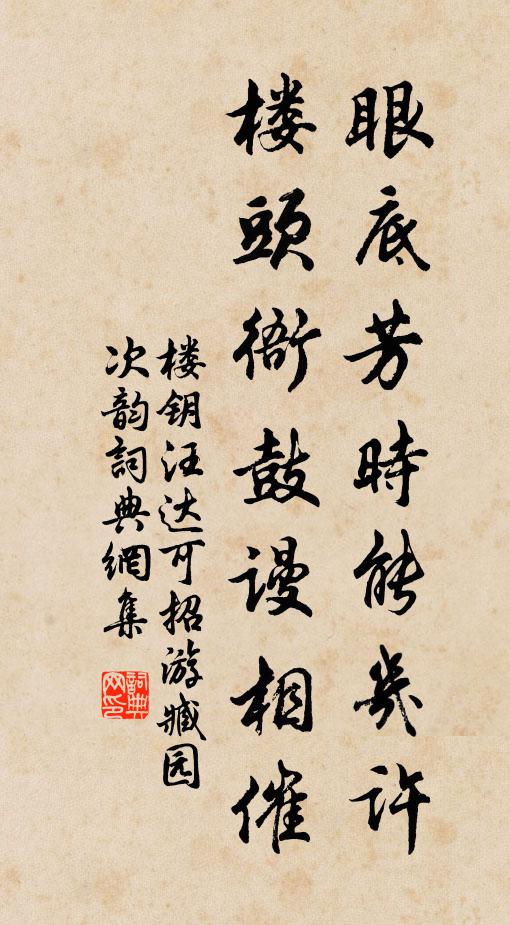 眼底芳時能幾許
楼頭衙鼓谩相催
楼钥汪达可招游臧园
次韵詞典網集
詞典
网印